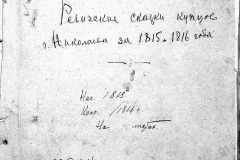 Ревизские сказки купцов
г. Николаева за 1815-1816 года
Нач. 1815
Кон. /1816 г.
На листах.